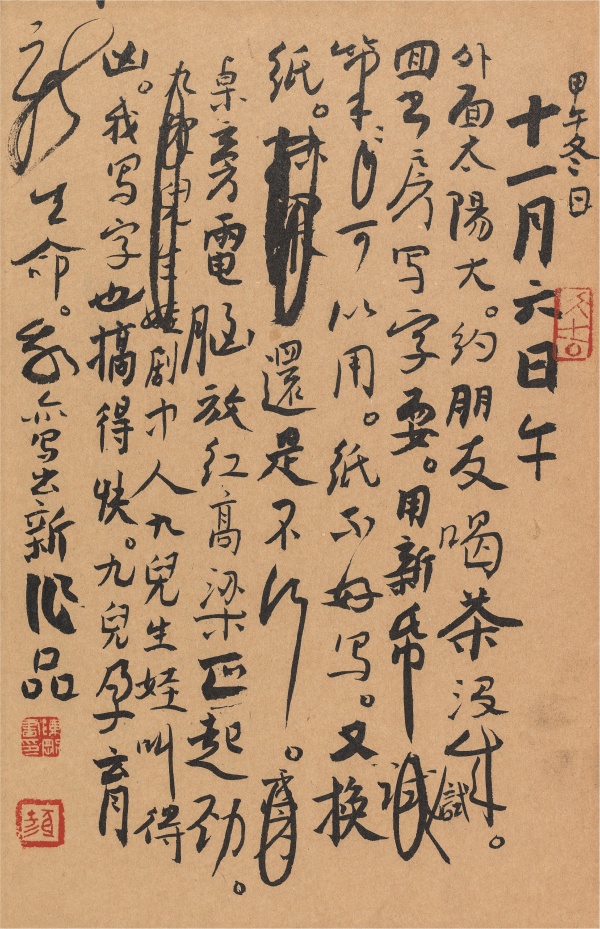 甲午冬日
十一月六日午
外面太陽大。約朋友喝茶没成。
回书房写字耍。用新帋試
筆可以用。纸不好写。又换
纸。還是不行。
桌旁電脑放红高梁正起劲。
九兒生娃剧中人九兒生娃叫得
凶。我写字也搞得快。九兒孕育
新生命。我亦写出新作品